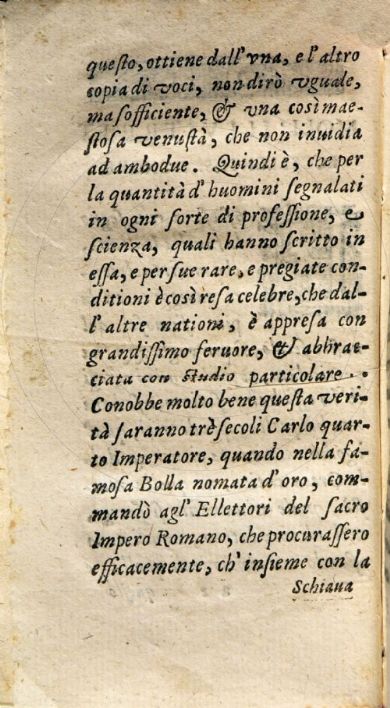 queſto, ottiene dall' vna, e l' altro
copia di voci, non dirò vguale,
ma ſofficiente, & vna così mae-
ſtoſa venuſtà, che non inuidia
ad ambodue. Quindi è, che per
la quantità d' huomini ſegnalati
in ogni ſorte di profeſſione, e
ſcienza, quali hanno ſcritto in
eſſa, e per ſue rare, e pregiate con-
ditioni è così reſa celebre, che dal-
l' altre nationi, è appreſa con
grandiſſimo feruore, & abbrac-
ciata con ſtudio particolare.
Conobbe molto bene queſta veri-
tà ſaranno trè ſecoli Carlo quar-
to Imperatore, quando nella fa-
moſa Bolla nomata d' oro, com-
mandò agl' Ellettori del ſacro
Impero Romano, che procuraſſero
efficacemente, ch' inſieme con la
Schiaua